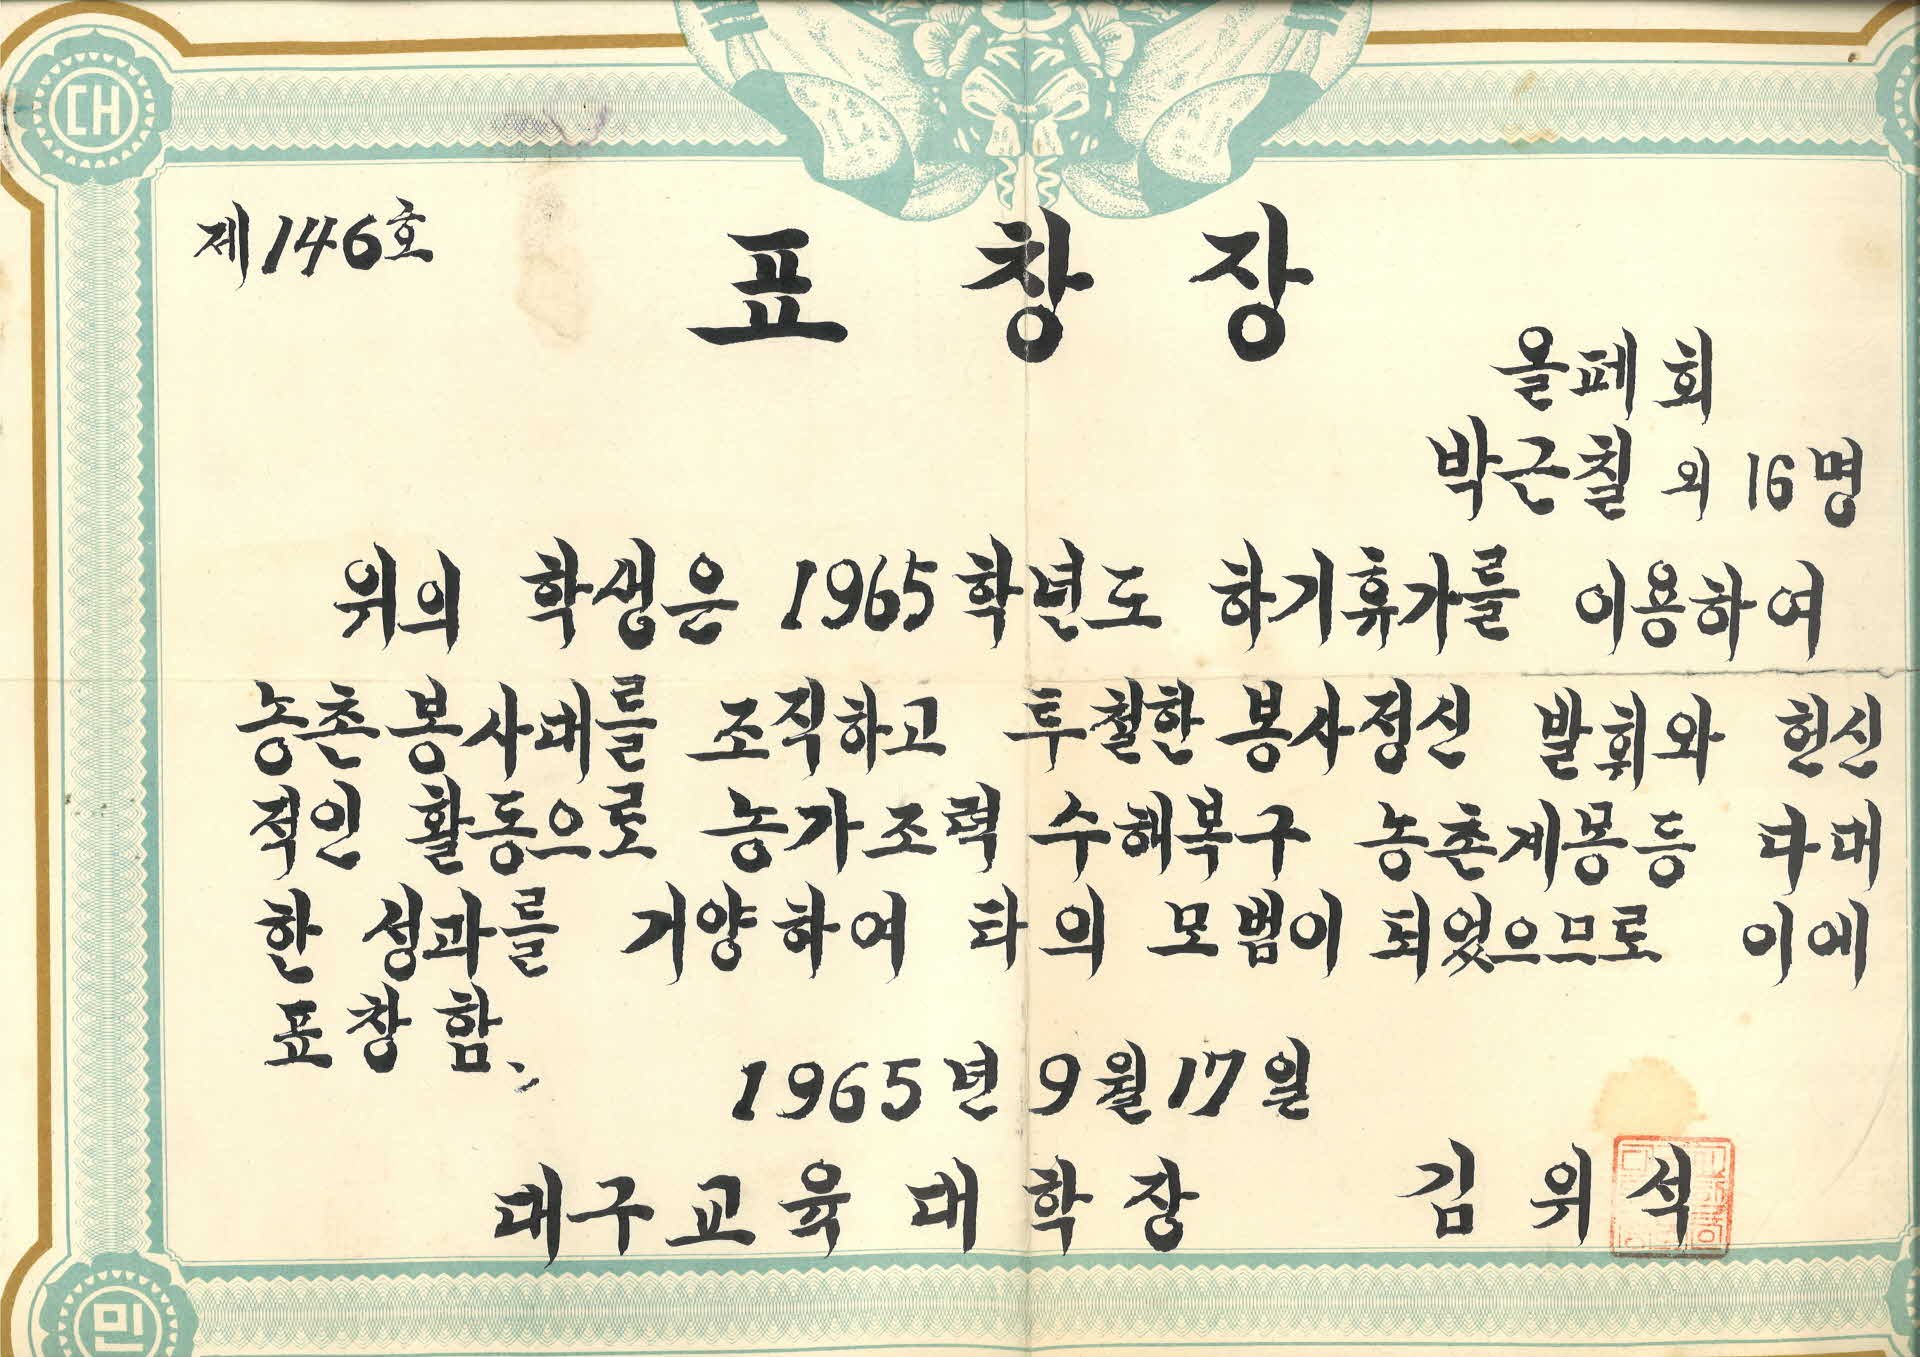 대
제146호
표창장
올페회
박근칠 외 16명
위의 학생은 1965학년도 하기휴가를 이용하여
농촌봉사대를 조직하고 투철한 봉사정신 발휘와 헌신
적인 활동으로 농가조력 수해복구 농촌계몽등 다대
한 성과를 거양하여 타의 모범이 되었으므로 이에
표창함.
1965년 9월 17일
대구교육대학장 김위석
민